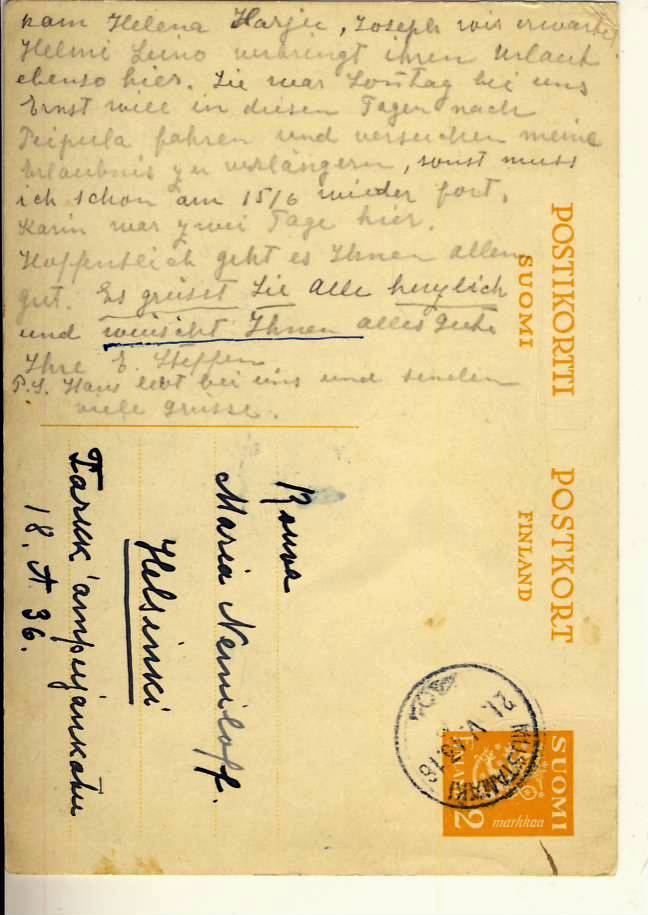 kam Helena Harju, Joseph wir erwarte
Helmi Leino verbringt ihren Urlaub
ebenso hier. Sie war Sontag bei uns
Ernst will in diesen Tagen nach
Peipula fahren und versuchen meine
Erlaubnis zu verlängern, sonst muss
ich schon am 15/6 wieder fort.
Karin war zwei Tage hier.
Hoffentlich geht es Ihnen allen
gut. Es grüsst Sie Alle herzlich
und wünscht Ihnen alles Gute
Ihre E. Steffen
P.S. Hans lebt bei uns und senden
viele Grüsse.
POSTIKORTTI POSTKORT
SUOMI FINLAND
SUOMI
2 markkaa
MUSTAMÄKI
21. V. 43.18
Rouva
Maria Nemiloff.
Helsinki
18. A 36.